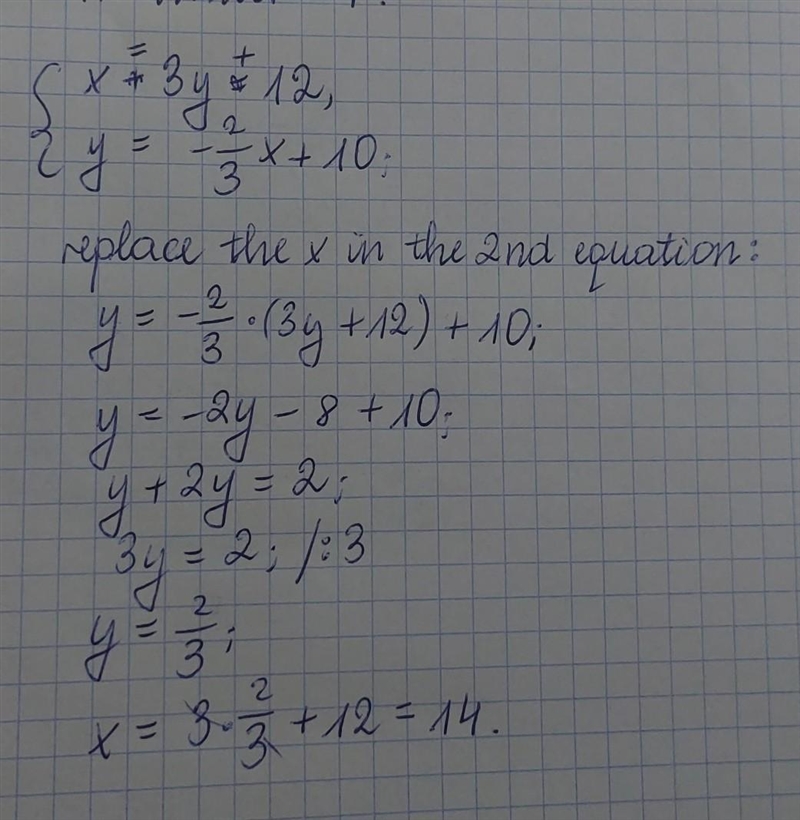 x = 3y + 12,
y = -2/3 x + 10;
replace the x in the 2nd equation:
y = -2/3 · (3y + 12) + 10;
y = -2y - 8 + 10;
y + 2y = 2;
3y = 2; /:3
y = 2/3;
x = 3 · 2/3 + 12 = 14.